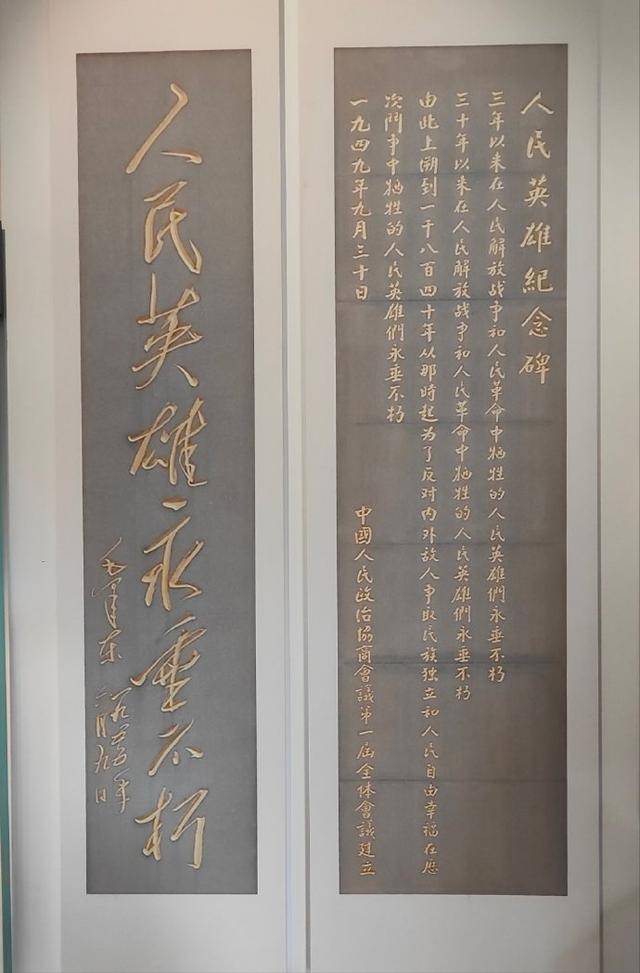 人民英雄紀念碑
三年以来在人民解放战争和人民革命中牺牲的人民英雄們永垂不朽
三十年以来在人民解放战争和人民革命中牺牲的人民英雄們永垂不朽
由此上溯到一千八百四十年从那時起为了反对内外敌人争取民族独立和人民自由幸福在歷
次鬥争中牺牲的人民英雄們永垂不朽
一九四九年九月三十日
中國人民政治協商會議第一届全体會議建立
人民英雄永垂不朽
毛澤东
一九五五年
六月九日